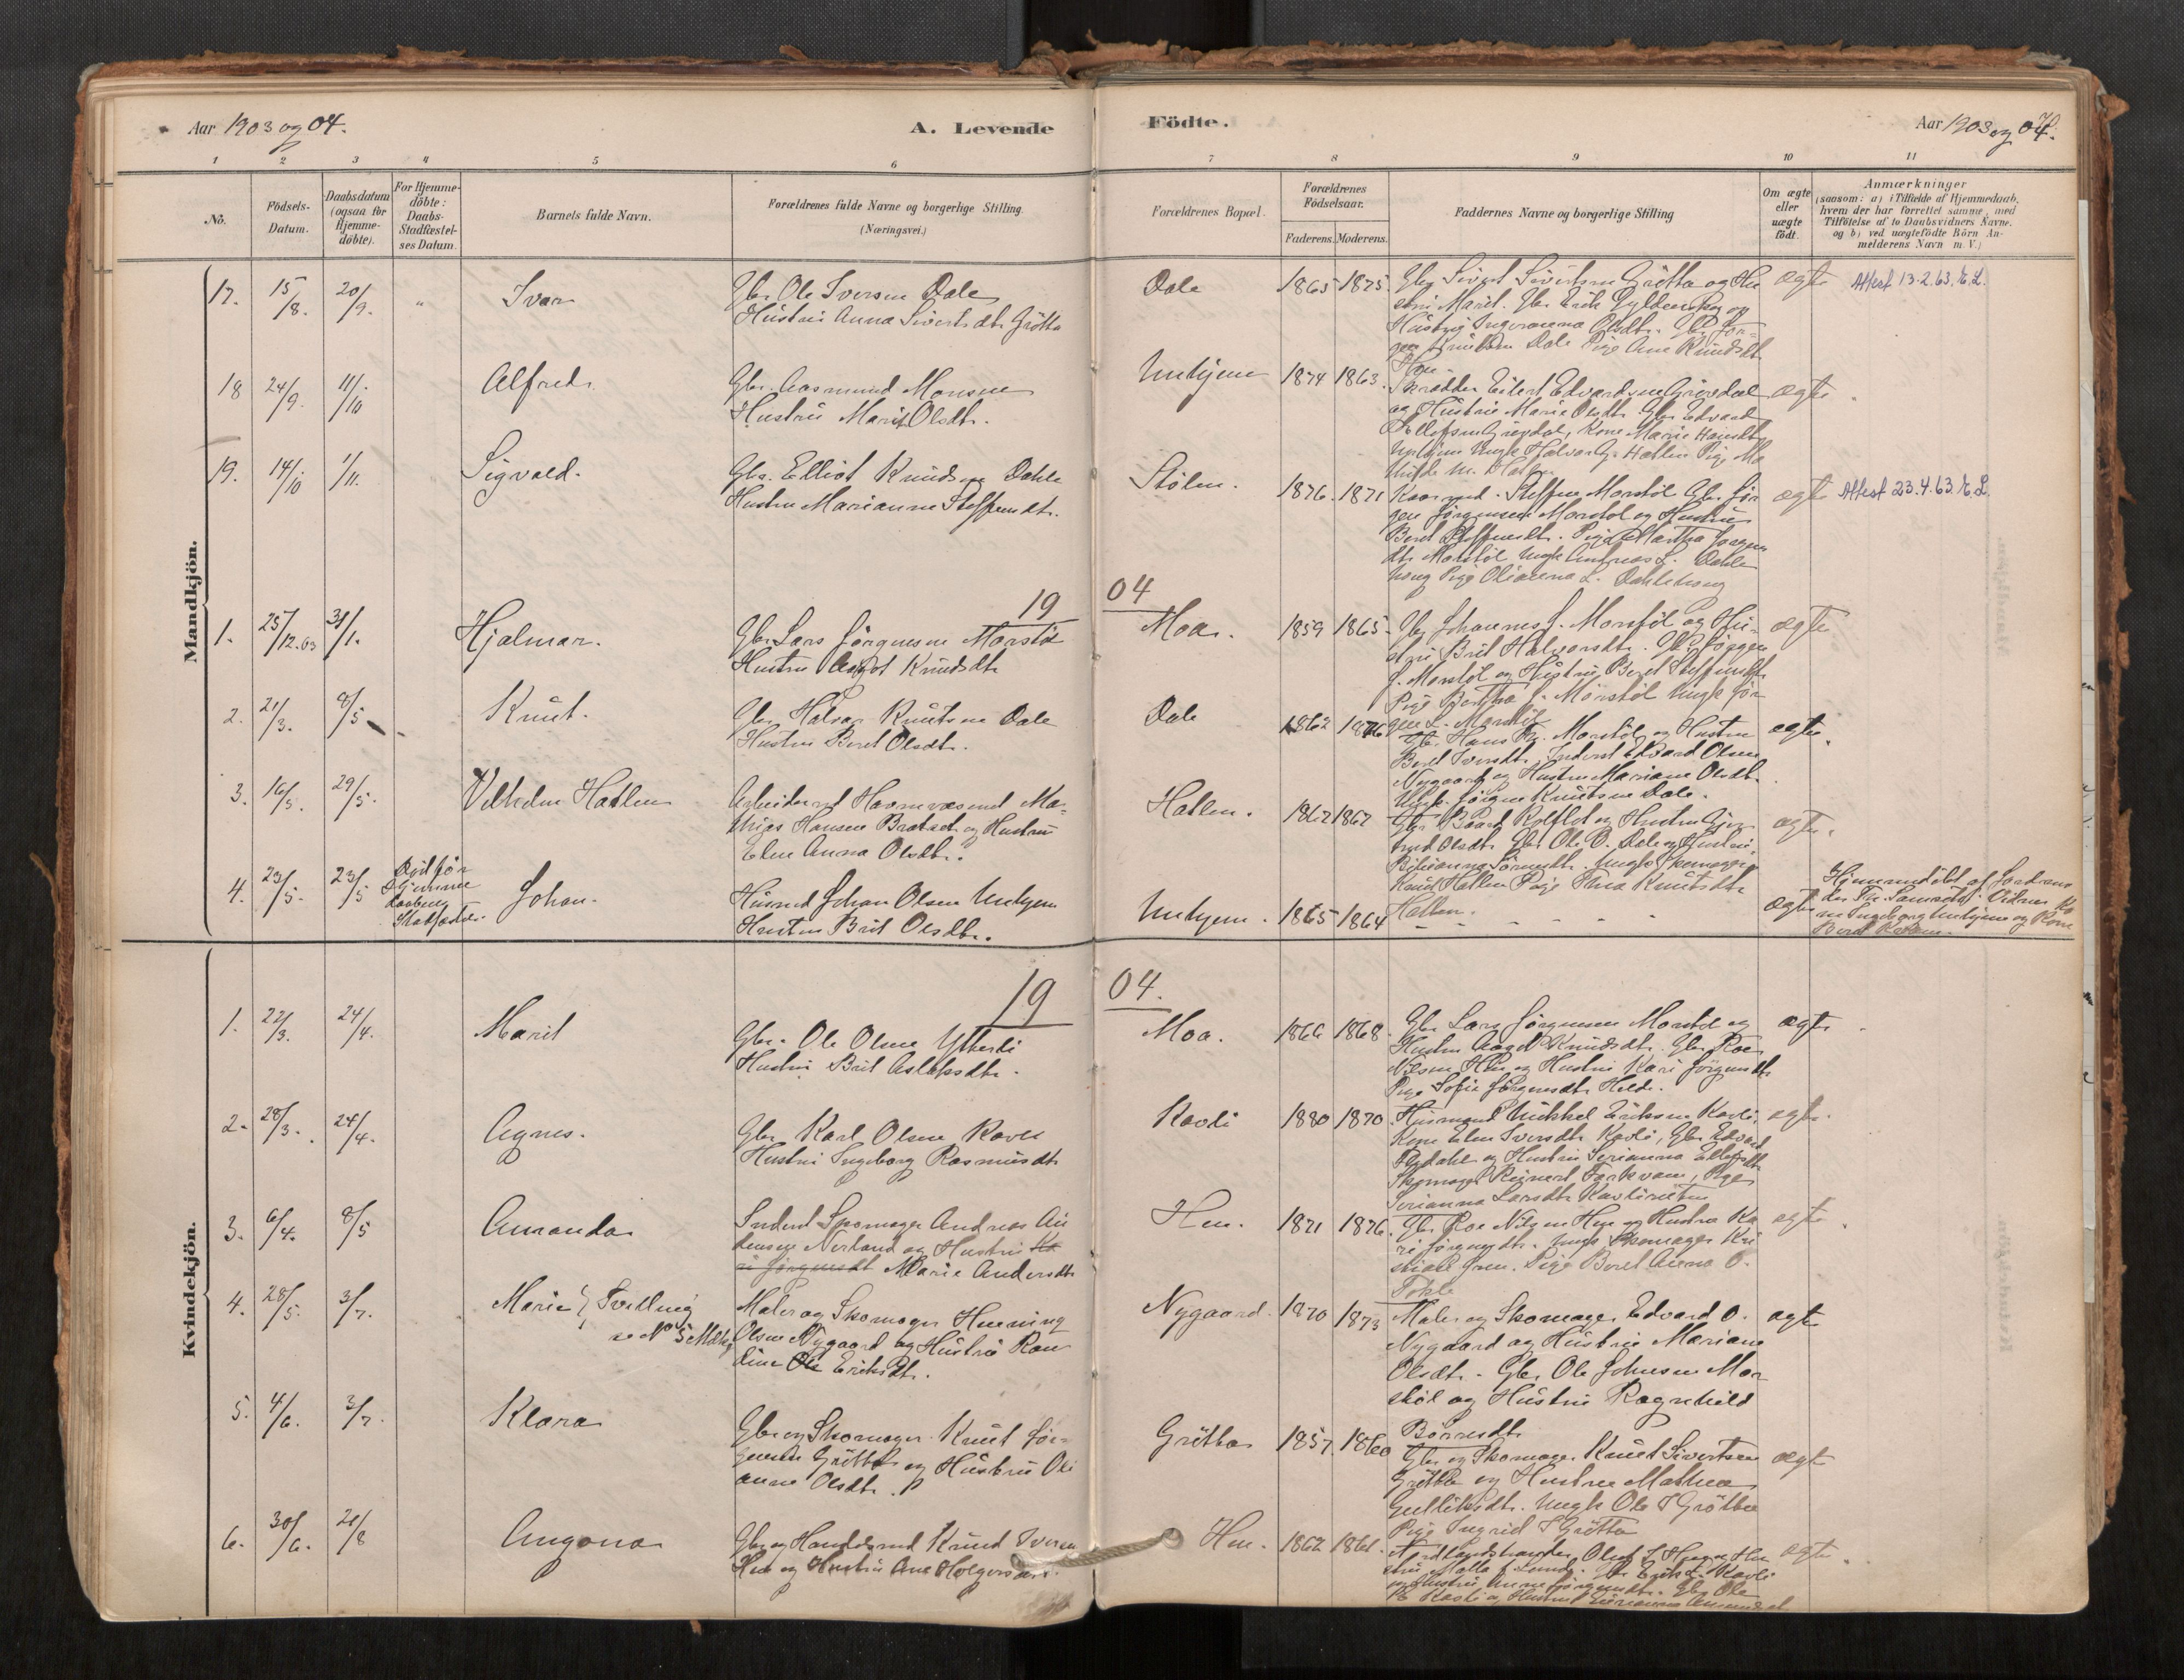 Aar 1903 og 04.
A. Levende Födte.
Aar 1903 og 04.
1 2 3 4 5 6 7 8 9 10 11
No.
Födsels-Datum.
Daabsdatum (ogsaa for Hjemme-döbte).
For Hjemme-döbte: Daabs-Stadfæstel-ses Datum.
Barnets fulde Navn.
Forældrenes fulde Navne og borgerlige Stilling (Næringsvei.)
Forældrenes Bopæl.
Forældrenes Födselsaar.
Faderens. Moderens.
Faddernes Navne og borgerlige Stilling
Om ægte eller uægte födt.
Anmærkninger
(saasom: a) i Tilfælde af Hjemmedaab, hvem der har forrettet samme, med Tilföielse af to Daabsvidners Navne, og b) ved uægtefödte Börn Anmelderens Navn m. V.)
Mandkjön.
17. 15/8. 20/9. " Ivar
Gbr. Ole Iversen Dale
Hustru Anna Siverts dtr Grötta
Dale 1865 1875.
Gbr Sivert Sivertsen Grötta og Hu
stru Marit. Gbr Erik Gyldenskog og
Hustru Ingeranna Olsdtr. Gbr Jör-
gen Knutsen Dale Pige Ane Knudsdt
Hen.
ægte Attest 13.2.63. E.L.
18 24/9. 11/10 Alfred.
Gbr. Aasmund Monsen
Hustru Marit Olsdtr.
Unhjem 1874 1863.
Skrædder Eilert Edvardsen Grövdal
og Hustru Marie Olsdtr. Gbr Edvard
Ellefsen Grövdal, Kone Marie
Unhjem Ungk Halvor G. Hatlen Pige Ma
ægte
19. 14/10 1/11. Sigvald.
Gbr. Elliot Knudsen Dahle
Hustru Marianne Steffensdtr.
Stölen. 1876. 1871
Kaarmd. Steffen Morstöl Gbr. Jör
gen Jörgensen Morstöl og Hustru
Beret Steffensdtr. Pige Martha Jörgens
dtr Morstöl Ungk Andreas L. Dahle
haug Pige Olianna L. Dahlehaug
ægte Attest 23.4.63. E.L.
1904
1. 25/12.03 31/1. Hjalmar.
Gbr Lars Jörgensen Morstöl
Hustru Aagot Knudsdtr
Moa. 1859 1865.
Gbr Johannes J. Morstöl og Hu-
stru Brit Halvorsdtr. Gbr Jörgen
J. Morstöl og Hustru Beret Steffensdtr
Pige Bertha J. Morstöl Ungk Jör-
gen L. Morstöl
ægte
2. 21/3. 8/5 Knut.
Gbr Halvor Knutsen Dale
Hustru Beret Olsdtr.
Dale 1862 1876
Gbr. Hans K. Morstöl og Hustru
Beret Iversdtr, Inderst Edvard Olsen
Nygaard og Hustru Mariane Olsdtr.
Ungk. Jörgen Knutsen Dale.
ægte.
3. 16/5. 29/5. Vilhelm Hatlen
Arbeider ved Havnevæsenet Ma-
thias Hansen Bratset og Hustru
Elen Anna Olsdtr.
Hatlen. 1862 1862
Gbr Baard Rolfsen og Hustru Gjer
trud Olsdtr Gbr Ole O. Dale og Hustru
Knud Hatlen Pige Knutsdtr
Hatlen.
ægte.
4. 23/5. 23/5 Johan.
Husmd Johan Olsen Unhjem
Hustru Brit Olsdtr.
Unhjem. 1865 1864
ægte
Hjemmedöbt af Jordemo
der Vidner Ko
ne Ingeborg Unhjem og Kone
Beret
Kvindekjön.
1904.
1. 22/3. 24/4. Marit
Gbr. Ole Olsen Ytterli
Hustru Brit Aslaksdtr.
Moa. 1866 1868.
Gbr Lars Jörgensen Morstöl og
Hustru Aagot Knudsdtr. Gbr Roe
Nilsen Hen og Hustru Kari Jörgensdtr
Pige Sofie Jörgensdtr Helde.
ægte
2. 28/3. 24/4. Agnes.
Gbr Karl Olsen Kavli
Hustru Ingeborg Rasmusdtr
Kavli 1880 1870
Husmand Mikkel Eriksen Kavli,
Kone Elen Iversdtr Kavli, Gbr Edvard
Flydahl og Hustru Serianna Ellefsdtr
Skomager Reinert Forkvam, Pige
Serianna Larsdtr Kavliröten
ægte.
3. 6/4. 8/5 Amanda
Inderst Skomager Andreas An
densen Nerland og Hustru Ka
ri Jörgensdt Marie Andersdtr
Hen. 1871 1876.
Gbr Roe Nilsen Hen og Hustru Ka
ri Jörgensdtr. Ungk Skomager Kri
stian Hen. Pige Beret Anna O.
Fokle
ægte
4. 28/5. 3/7. Marie } Tvilling
se No 5 Mdkj
Maler og Skomager Henning
Olsen Nygaard og Hustru Ran
dine Ole Eriksdtr.
Nygaard. 1870 1873
Maler og Skomager Edvard O.
Nygaard og Hustru Mariane
Olsdtr. Gbr Ole Johnsen Mor
stöl og Hustru Ragnhild
Börresdtr
ægte
5. 4/6. 3/7. Klara
Gbr og Skomager Knut Jör-
gensen Grötta og Hustru Oli
anne Olsdtr.
Grötta 1857. 1860
Gbr og Skomager Knut Sivertsen
Grötta og Hustru Mathea
Gulliksdtr. Ungk Ole S Grötta
Pige Ingrid S Grötta
ægte
6. 30/6. 21/8 Angona
Gbr og Handelsmd Knud Iversen
Hen og Hustru Ane Holgersdtr.
Hen. 1862 1861.
Nordlandshandler Oluf I. Hen og Hu
og Hustru Anne Jörgensdtr. Gbr Ole
Kavli og Hustru Serianna
ægte.